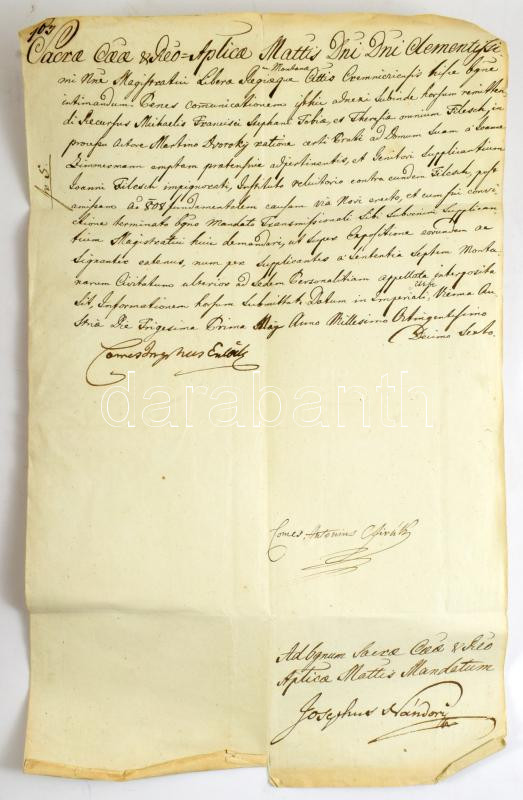 103
Sacræ Cæs & Reo = Aplicæ Mattis Dni Dni Clementissi
mi Nne Magistratui Liberæ Regiæque ac Montanæ Cttis Cremniciensis hisce bgne
intimandum: Penes comunicationem isthic adnexi subinde horsum remitten
di Recursus Michaelis Francisci Stephani Tobiæ et Theresiæ omnium Filesch, in
processu Actore Martino Dvorsky ratione certi Prati ad Domum suam a Joanne
Zimmermann emptam prætensive adpertinentis, et Genitori Supplicantium
Joanni Filesch impignorati, Instituto reluitorio contra eundem Filesch, post
amissam Ao 808 fundamentalem causam via Novi erecto, et cum
terminato bgno Mandato Transmissionali Sibi Submitti Supplican
tium Magistratui huic demandari, ut super Expositione eorundem ac
signanter eatenus, num per Supplicantes a Sententia Septem Monta
narum Civitatum ulterius ad Sedem Personalitiam appellata interposita
sit, Informationem horsum Submittat. Datum in Imperiali Urbe Vienna Au
striæ Die Trigesima Prima Maji Anno Millesimo Octingentesimo
Decimo Sexto.
N 5.
Comes Josephus Erdődy
darabanth
Comes Antonius Cziráky
Ad bgnum Sacræ Cæs & Reo
Aplicæ Mattis Mandatum
Josephus Nándory